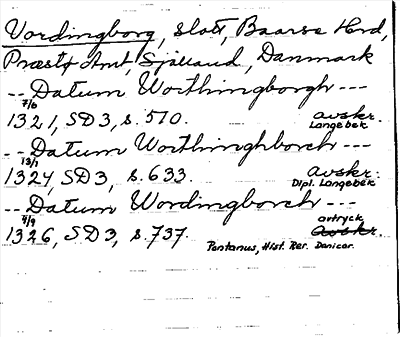 Vordingborg, slott, Baarse Hrd,
Præstø Amt, Själland, Danmark
-- Datum Worthingborgh ---
7/6
1321, SD3, s. 510. avskr.
Langebek
-- Datum Worthinghborch ---
13/1
1324, SD3, s. 633. avskr.
Dipl. Langebek
-- Datum Wordingborch ---
4/9 avtryck
1326, SD3, s. 737. avskr.
Pontanus, Hist. Rer. Danicar.